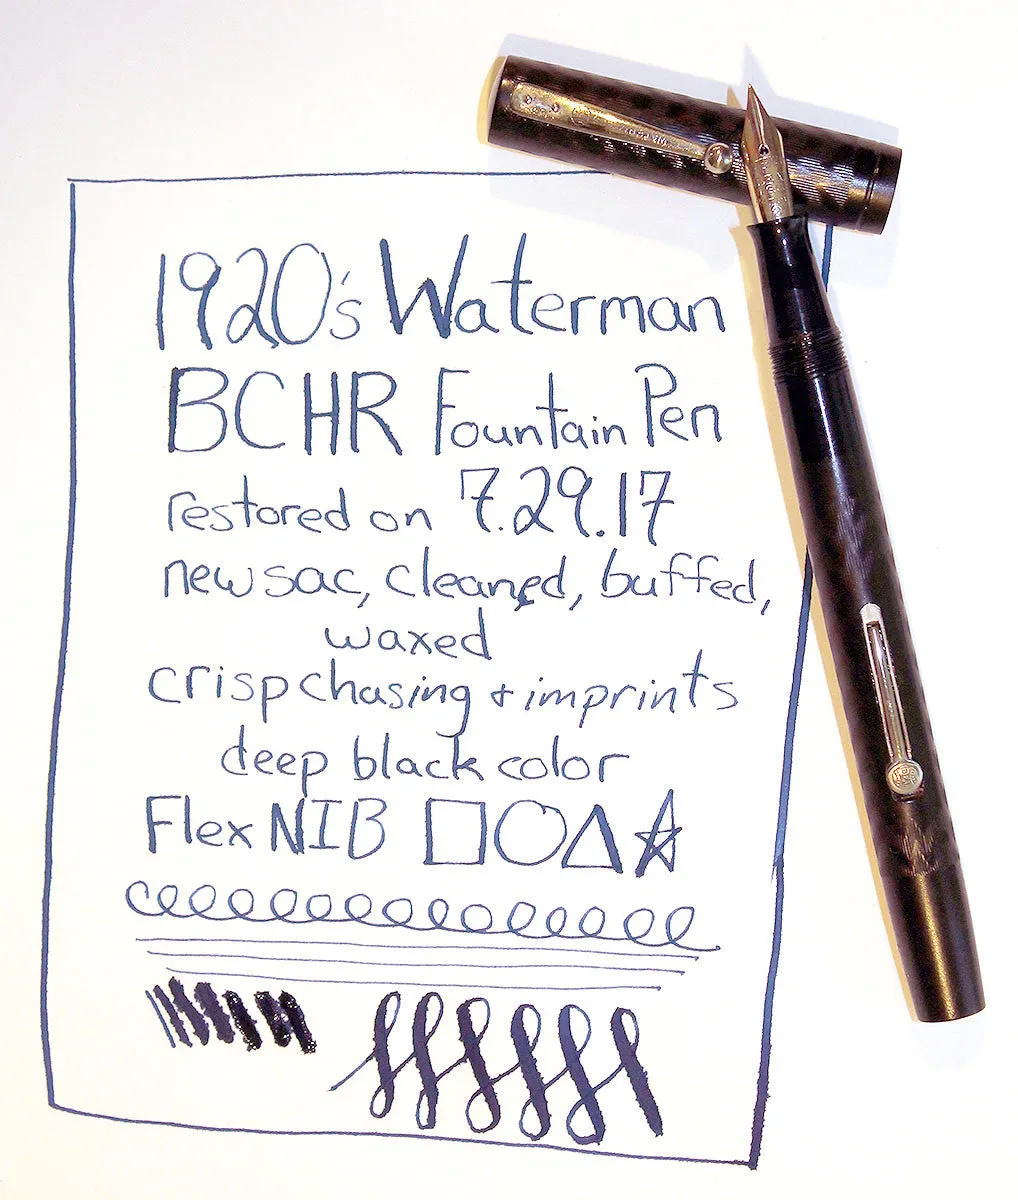 1920's Waterman
BCHR Fountain Pen
restored on 7.29.17
new sac, cleaned, buffed,
waxed
crisp chasing + imprints
deep black color
Flex NIB